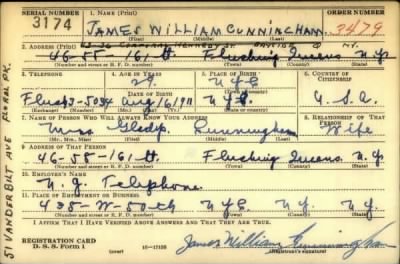 SERIAL NUMBER 1. NAME (Print) ORDER NUMBER
3174 JAMES WILLIAM CUNNINGHAM 3479
(First) (Middle) (Last)
2. ADDRESS (Print)
46-58-161 st Flushing Queens N.Y.
(Number and street or R. F. D. number) (Town) (County) (State)
3. TELEPHONE 4. AGE IN YEARS 5. PLACE OF BIRTH 6. COUNTRY OF CITIZENSHIP
29 N.Y.C.
DATE OF BIRTH
Flush 3-5034 Aug 16 1911 N.Y. U.S.A.
(Exchange) (Number) (Mo.) (Day) (Yr.) (State or country)
7. NAME OF PERSON WHO WILL ALWAYS KNOW YOUR ADDRESS 8. RELATIONSHIP OF THAT PERSON
Mrs. Gladys Cunningham Wife
(Mr., Mrs., Miss) (First) (Middle) (Last)
9. ADDRESS OF THAT PERSON
46-58-161 st. Flushing Queens N.Y.
(Number and street or R. F. D. number) (Town) (County) (State)
10. EMPLOYER'S NAME
N.Y. Telephone
11. PLACE OF EMPLOYMENT OR BUSINESS
435-W-50th N.Y.C. N.Y. N.Y.
(Number and street or R. F. D. number) (Town) (County) (State)
I AFFIRM THAT I HAVE VERIFIED ABOVE ANSWERS AND THAT THEY ARE TRUE.
REGISTRATION CARD
D. S. S. Form 1 (over) 16-17105 James William Cunningham
(Registrant's signature)
51 VANDERBILT AVE FLORAL PK.